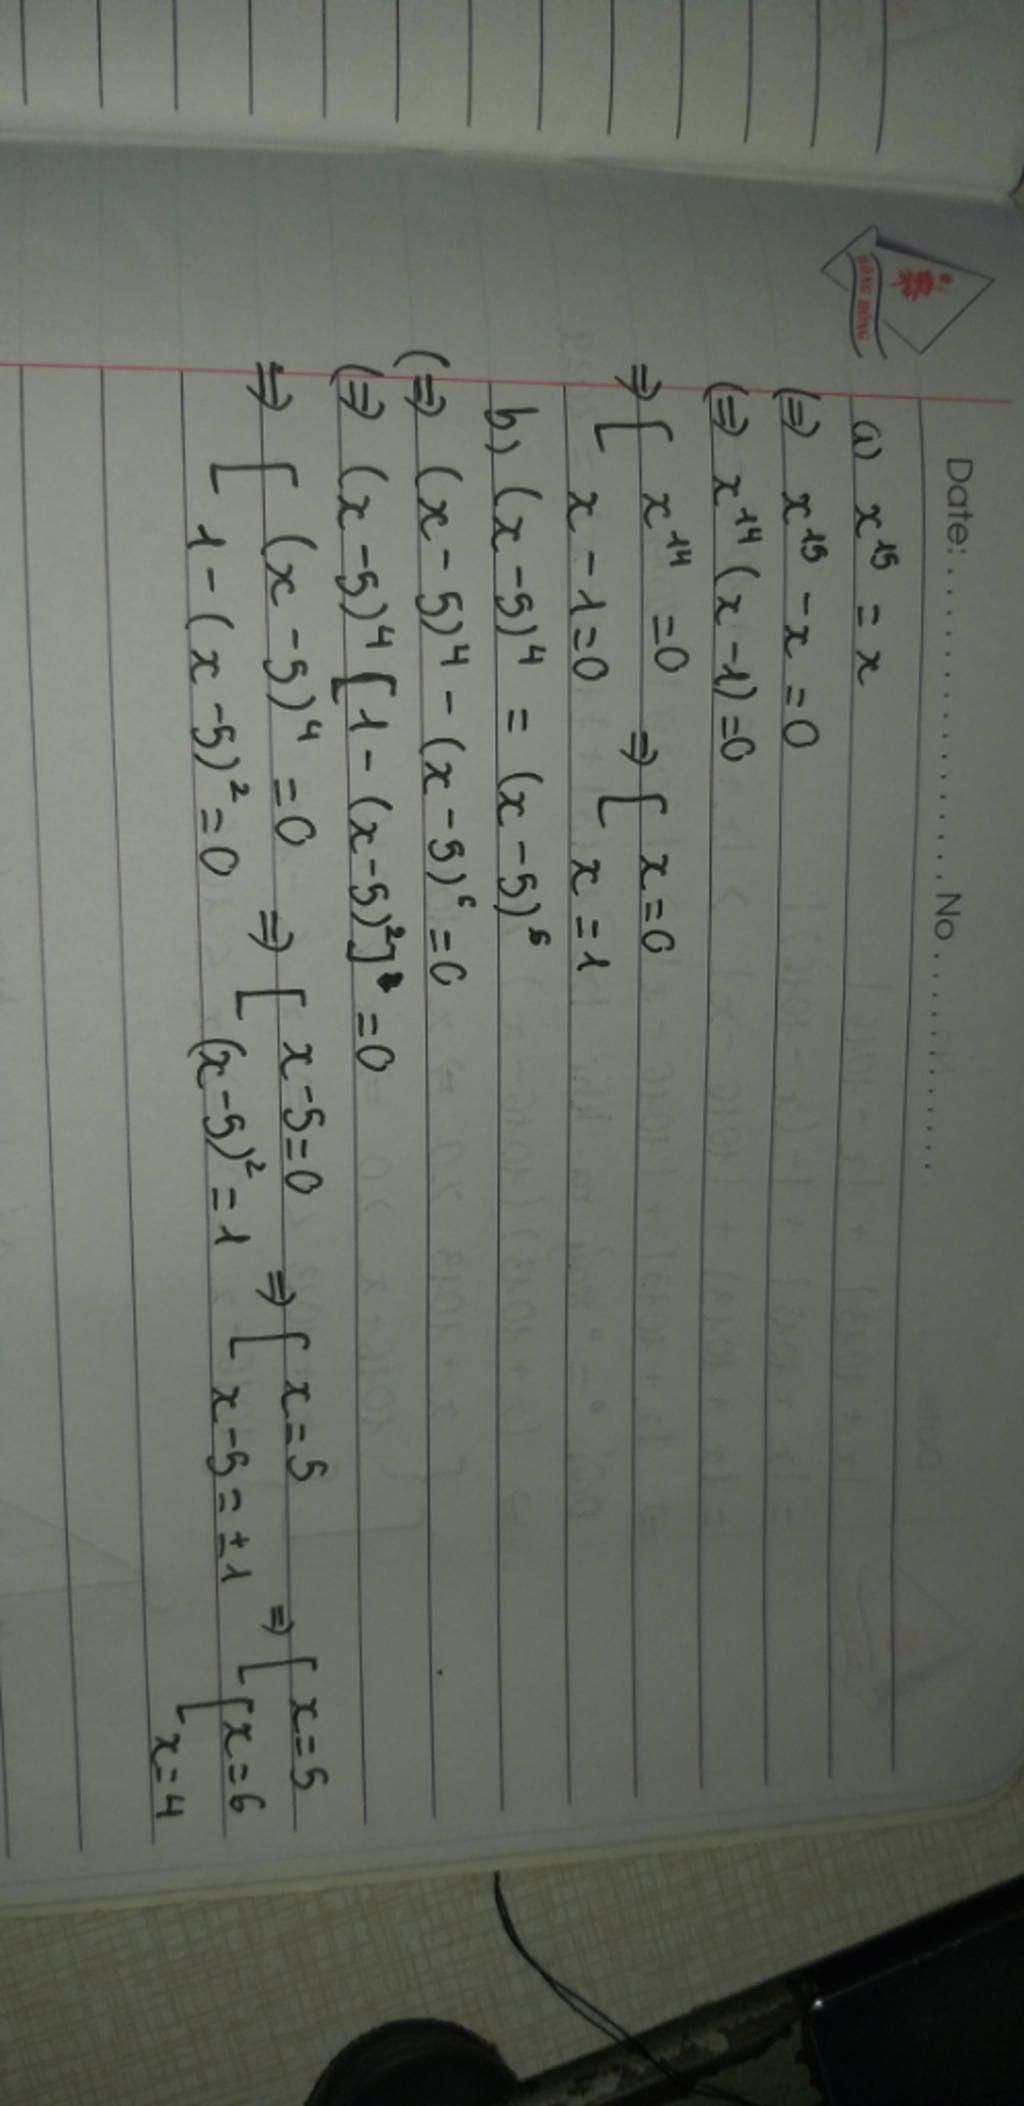 Date: .................... No ................
a) x¹⁵ = x
(=) x¹⁵ - x = 0
(=) x¹⁴ (x - 1) = 0
=> [ x¹⁴ = 0 => [ x = 0
x - 1 = 0 x = 1
b) (x - 5)⁴ = (x - 5)⁶
(=) (x - 5)⁴ - (x - 5)⁶ = 0
(=) (x - 5)⁴ [1 - (x - 5)²] = 0
=> [ (x - 5)⁴ = 0 => [ x - 5 = 0 => [ x = 5 => [ x = 5
1 - (x - 5)² = 0 (x - 5)² = 1 x - 5 = ±1 [ x = 6
x = 4